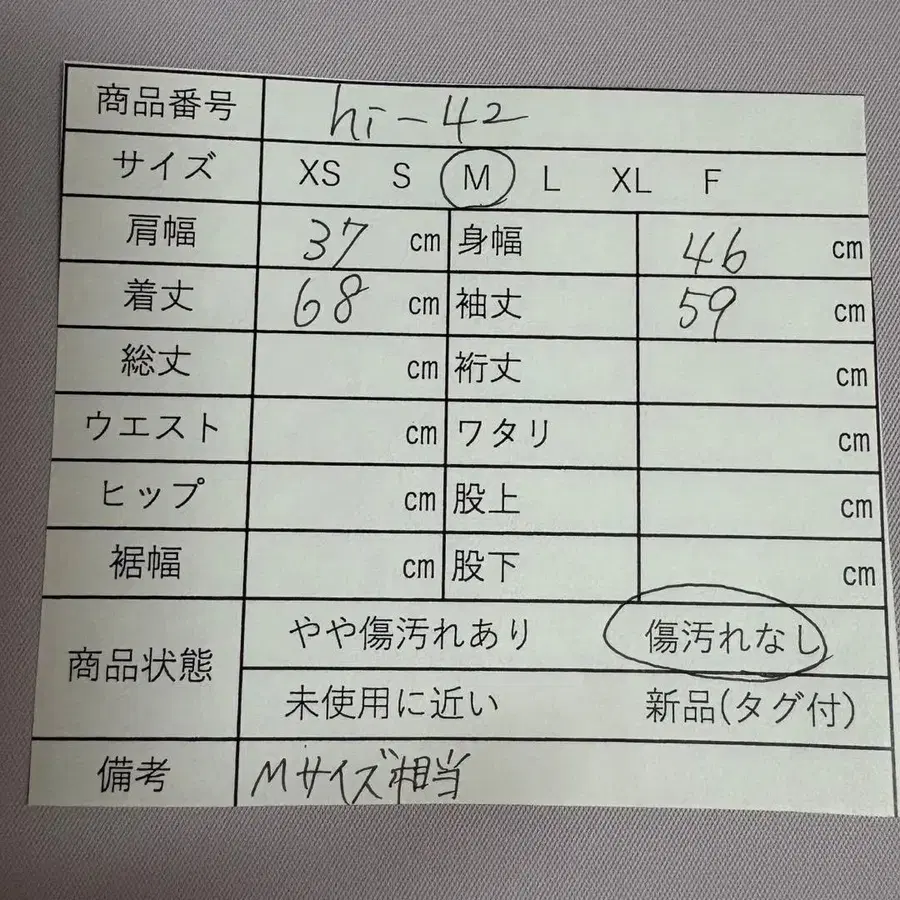 商品番号 hi-42
サイズ XS S M L XL F
肩幅 37 cm 身幅 46 cm
着丈 68 cm 袖丈 59 cm
総丈 cm 裄丈 cm
ウエスト cm ワタリ cm
ヒップ cm 股上 cm
裾幅 cm 股下 cm
商品状態 やや傷汚れあり 傷汚れなし
未使用に近い 新品(タグ付)
備考 Mサイズ相当